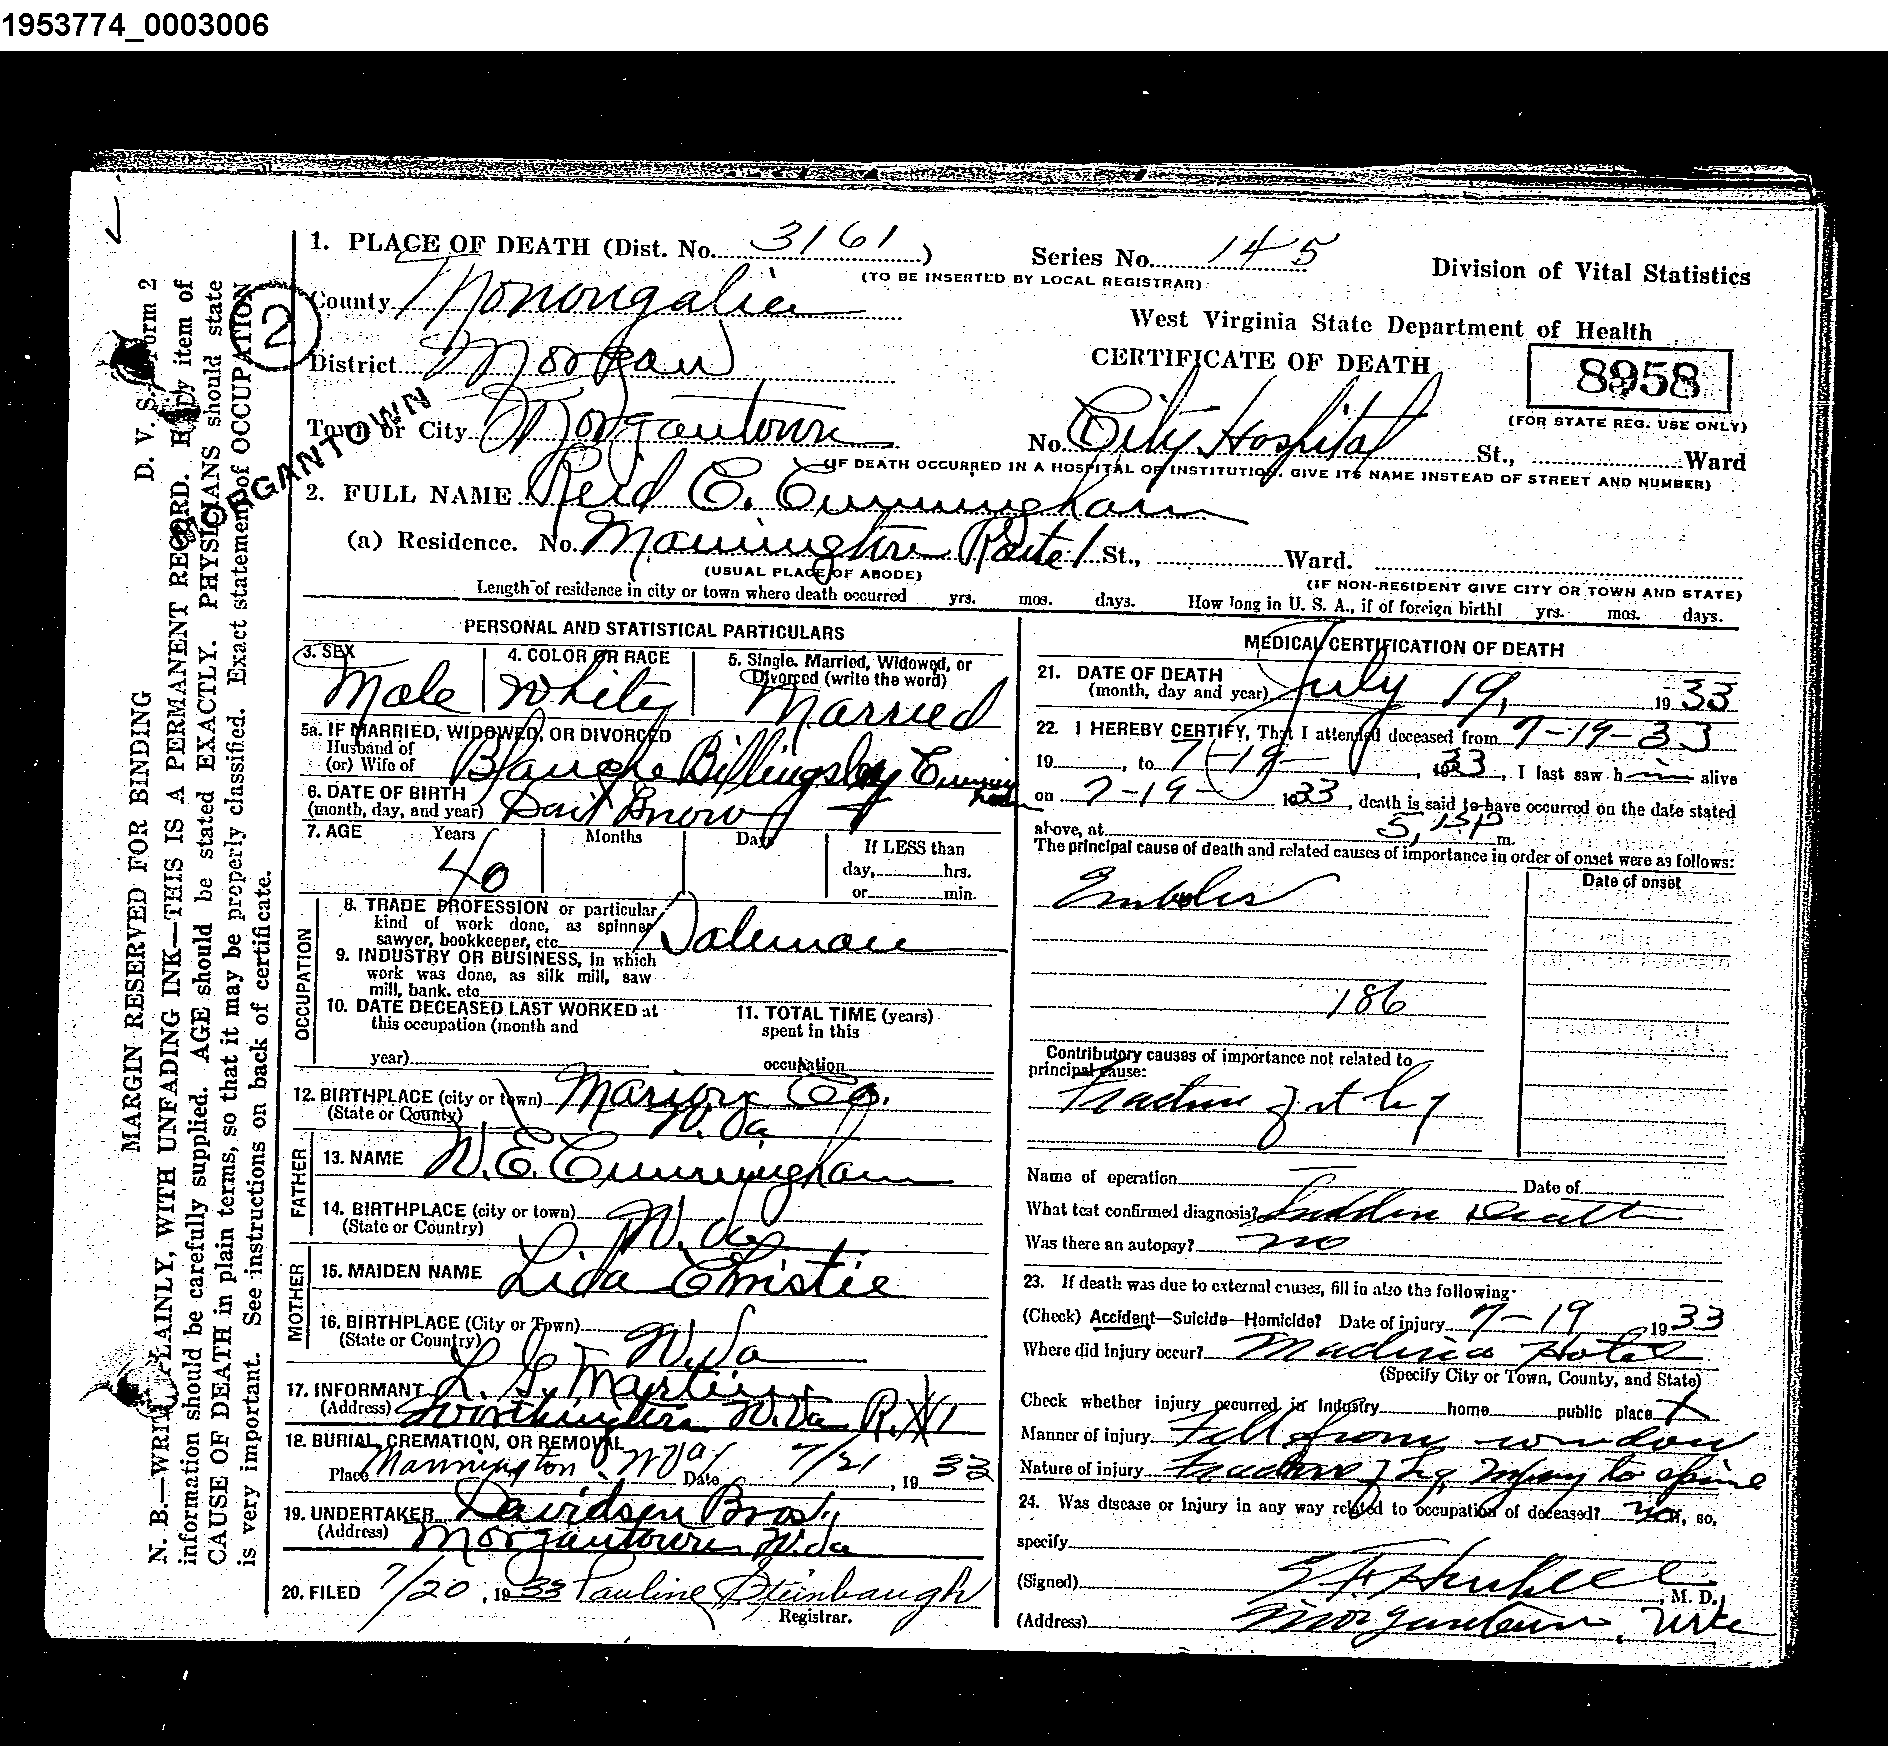 1953774_0003006
1. PLACE OF DEATH (Dist. No. 3161)
Series No. 145
(TO BE INSERTED BY LOCAL REGISTRAR)
Division of Vital Statistics
County Monongalia
West Virginia State Department of Health
District Morgan
CERTIFICATE OF DEATH
8958
(FOR STATE REG. USE ONLY)
Town or City Morgantown
No. City Hospital St., Ward
(IF DEATH OCCURRED IN A HOSPITAL OR INSTITUTION, GIVE ITS NAME INSTEAD OF STREET AND NUMBER)
2
MORGANTOWN
2. FULL NAME Reid E. Cunningham
(a) Residence. No. Mannington Route 1 St., Ward.
(USUAL PLACE OF ABODE)
(IF NON-RESIDENT GIVE CITY OR TOWN AND STATE)
Length of residence in city or town where death occurred yrs. mos. days. How long in U. S. A., if of foreign birth! yrs. mos. days.
PERSONAL AND STATISTICAL PARTICULARS
3. SEX
Male
4. COLOR OR RACE
White
5. Single, Married, Widowed, or
Divorced (write the word)
Married
5a. IF MARRIED, WIDOWED, OR DIVORCED
Husband of
(or) Wife of Blanche Billingsley Cunningham
6. DATE OF BIRTH
(month, day, and year) Don't Know
7. AGE Years Months Days If LESS than
day, hrs.
or min.
40
OCCUPATION
8. TRADE PROFESSION or particular
kind of work done, as spinner
sawyer, bookkeeper, etc.
9. INDUSTRY OR BUSINESS, in which
work was done, as silk mill, saw
mill, bank, etc
10. DATE DECEASED LAST WORKED at
this occupation (month and
year)
11. TOTAL TIME (years)
spent in this
occupation
12. BIRTHPLACE (city or town) Marion Co.
(State or County) W. Va
FATHER
13. NAME W. E. Cunningham
14. BIRTHPLACE (city or town)
(State or Country) W. Va
MOTHER
15. MAIDEN NAME Lida Christie
16. BIRTHPLACE (City or Town)
(State or Country) W. Va
17. INFORMANT L. G. Martin
(Address) Worthington W. Va R. #1
18. BURIAL, CREMATION, OR REMOVAL
Place Mannington W Va Date 7/21, 1933
19. UNDERTAKER Davidson Bros.,
(Address) Morgantown W. Va
20. FILED 7/20, 1933 Pauline Steinbaugh
Registrar.
MEDICAL CERTIFICATION OF DEATH
21. DATE OF DEATH
(month, day and year) July 19, 1933
22. I HEREBY CERTIFY, That I attended deceased from 7-19-33
19 , to 7-19- , 1933, I last saw him alive
on 7-19- 1933, death is said to have occurred on the date stated
above, at 5,15P m.
The principal cause of death and related causes of importance in order of onset were as follows:
Date of onset
186
Contributory causes of importance not related to
principal cause:
Fracture of rt leg
Name of operation Date of
What test confirmed diagnosis? Sudden Death
Was there an autopsy? no
23. If death was due to external causes, fill in also the following:
(Check) Accident—Suicide—Homicide? Date of injury 7-19 1933
Where did Injury occur? Madera Hotel
(Specify City or Town, County, and State)
Check whether injury occurred in Industry home public place X
Manner of injury Fell from window
Nature of injury Fracture of leg Injury to spine
24. Was disease or injury in any way related to occupation of deceased? no If, so,
specify
(Signed) , M. D.
(Address) Morgantown, W Va
D. V. S. Form 2
MARGIN RESERVED FOR BINDING
N. B.—WRITE PLAINLY, WITH UNFADING INK—THIS IS A PERMANENT RECORD. Every item of
information should be carefully supplied. AGE should be stated EXACTLY. PHYSICIANS should state
CAUSE OF DEATH in plain terms, so that it may be properly classified. Exact statement of OCCUPATION
is very important. See instructions on back of certificate.